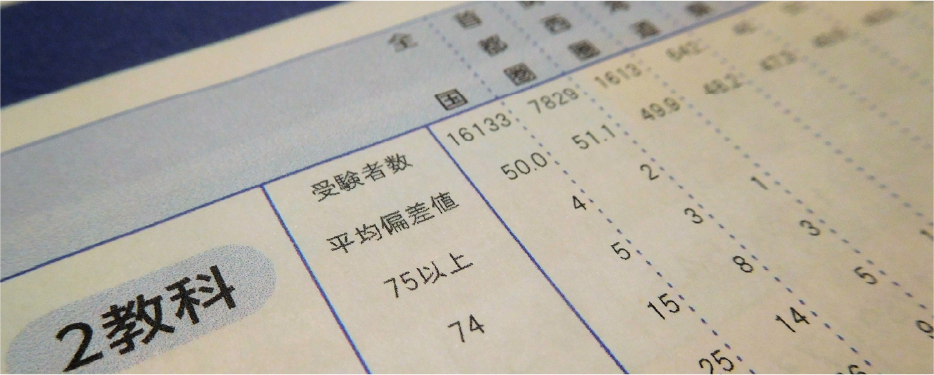 全国 首都圏
受験者数 16133 7829 1613 642
平均偏差値 50.0 51.1 49.9 48.2 47.3
75以上 4 2
74 5 3 1
15 8 3
25 14 5
2教科